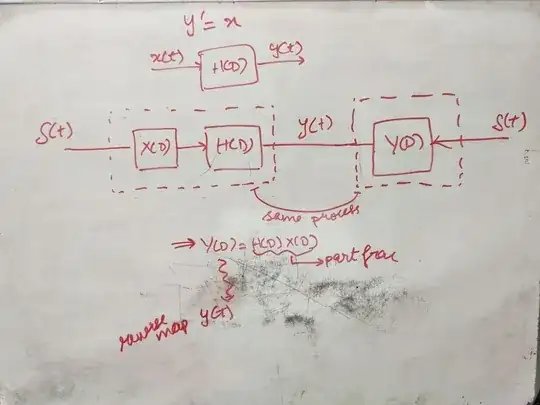 y' = x
x(t) H(D) y(t)
δ(t) X(D) H(D) y(t) Y(D) δ(t)
same process
⇒ Y(D) = H(D) X(D)
part frac
reverse map y(t)